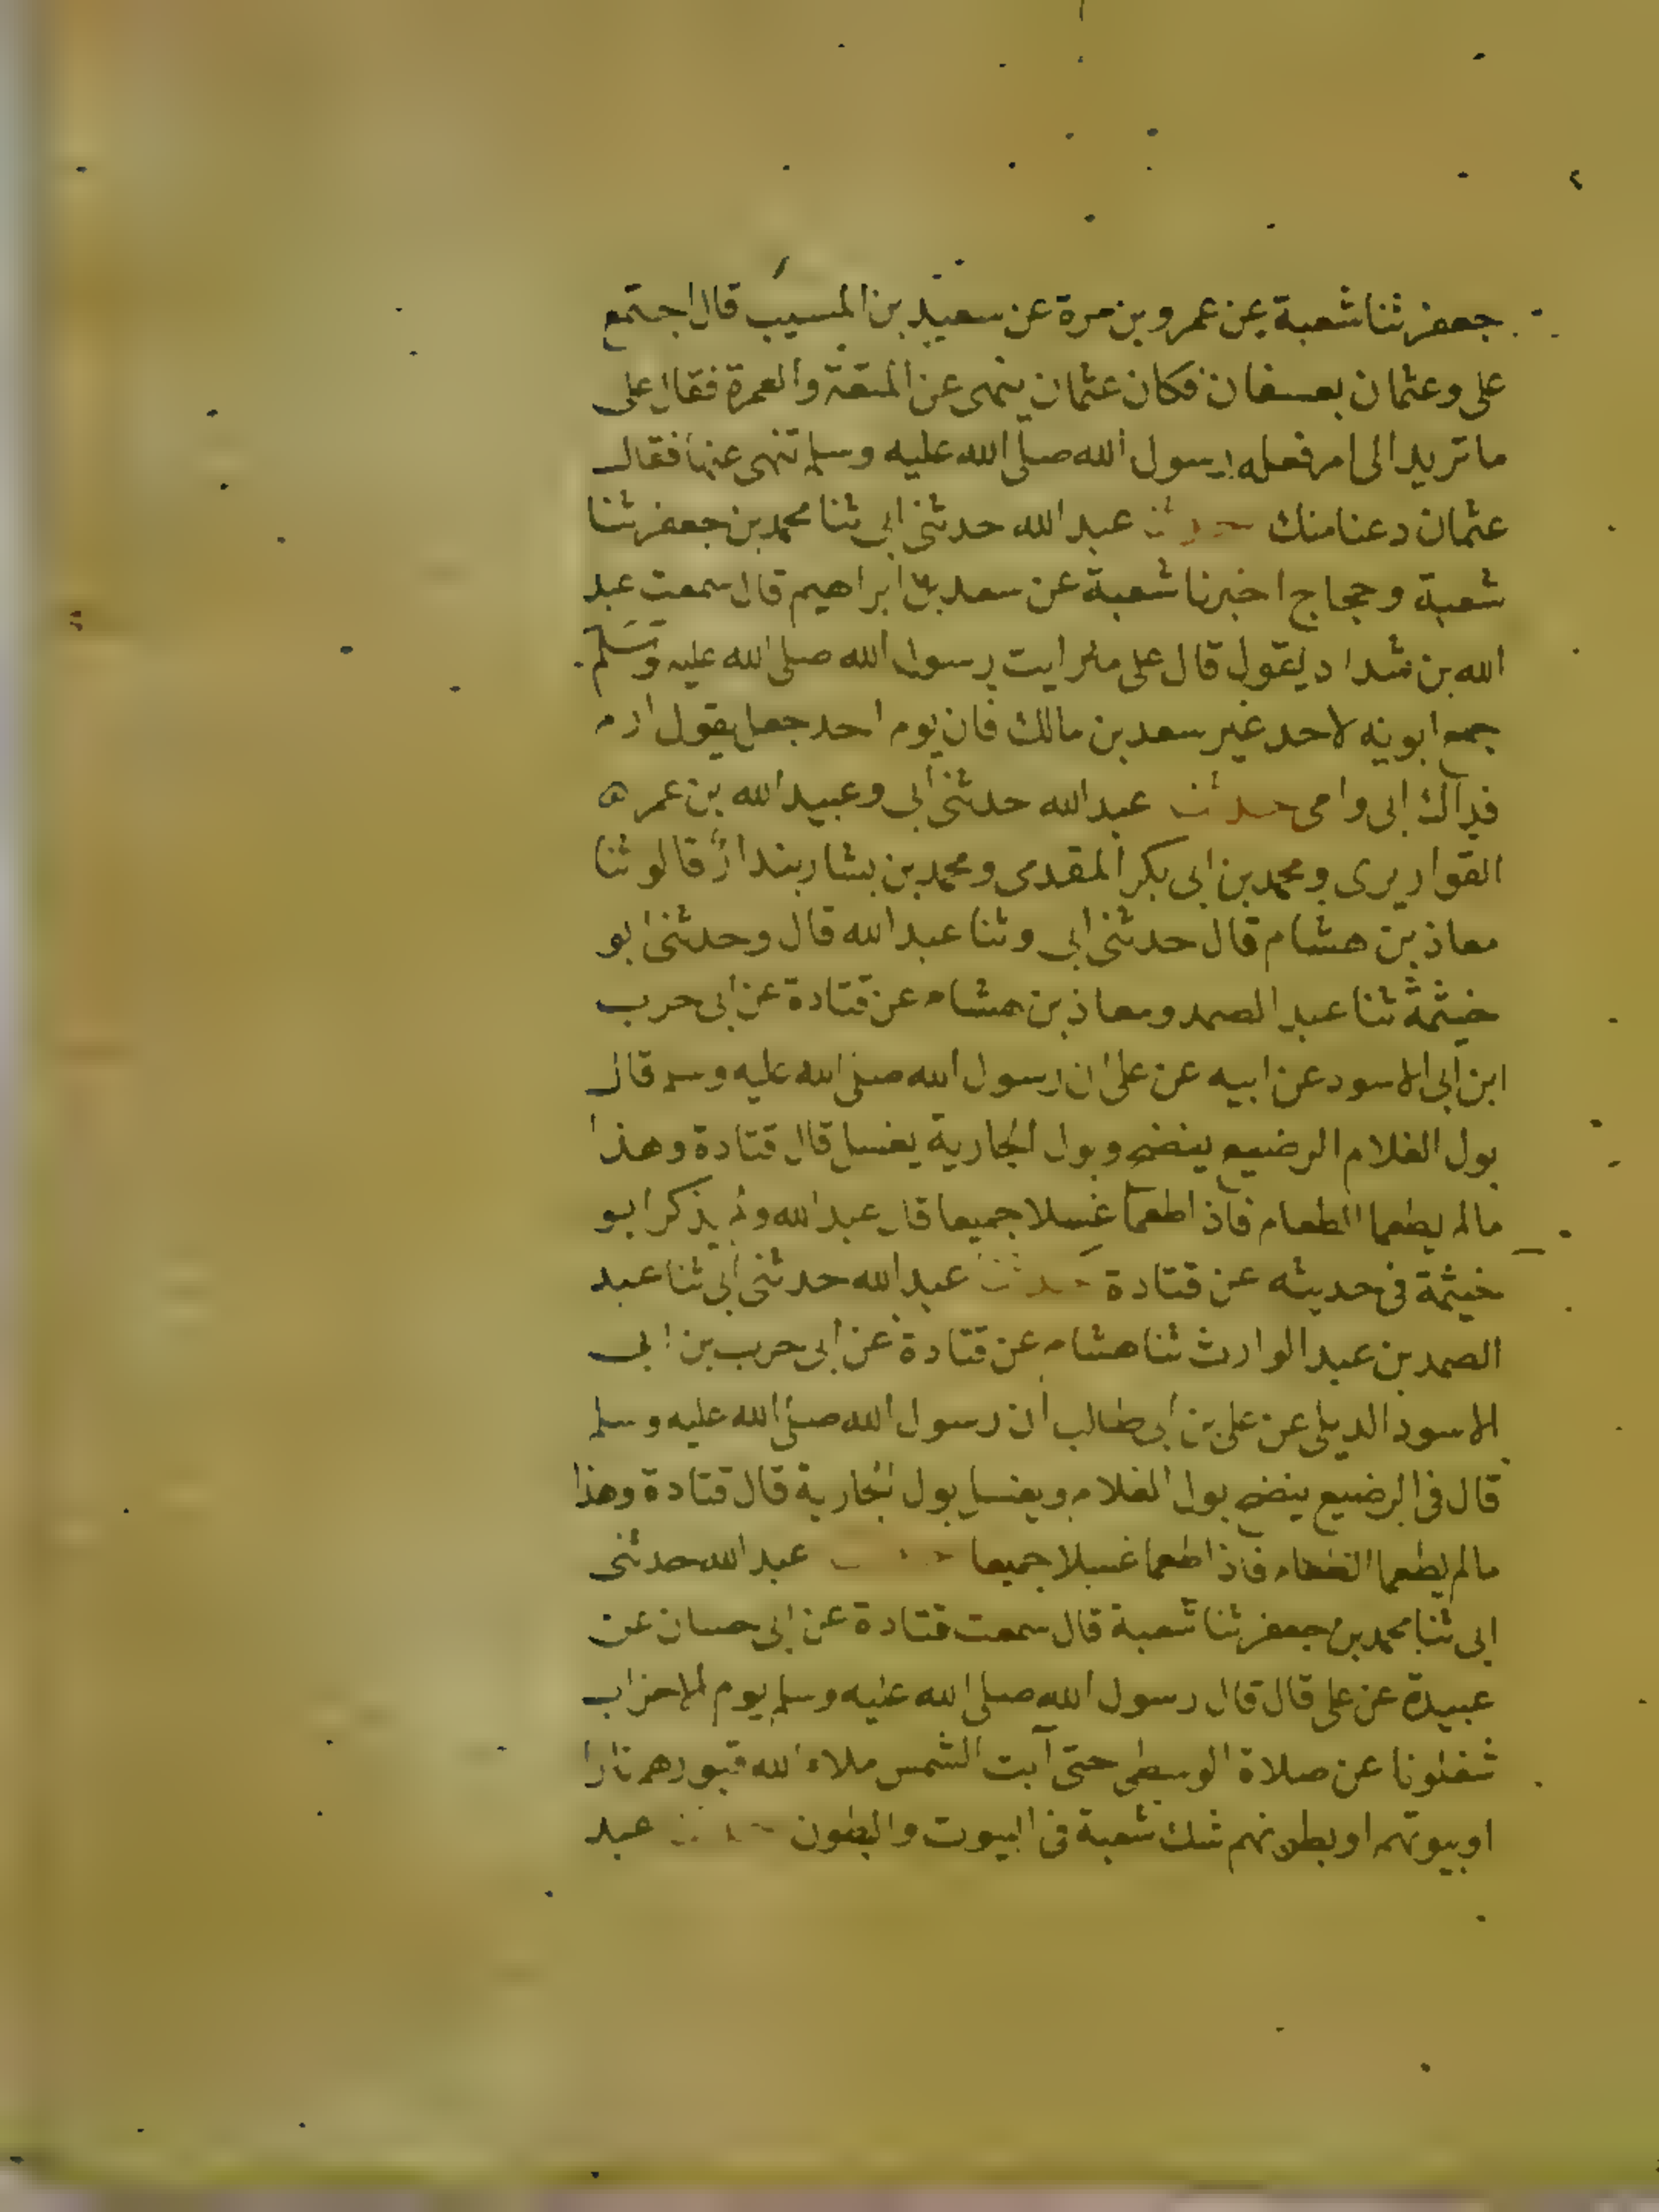 جعفر ثنا شعبة عن عمرو بن مرة عن سعيد بن المسيب قال اجتمع
على وعثمان بعسفان فكان عثمان ينهى عن المتعة والعمرة فقال على
ما تريد الى امر فعله رسول الله صلى الله عليه وسلم تنهى عنها فقال
عثمان دعنا منك حدثنا عبد الله حدثنى ابى ثنا محمد بن جعفر ثنا
شعبة وحجاج اخبرنا شعبة عن سعد بن ابراهيم قال سمعت عبد
الله بن شداد يقول قال على ما رايت رسول الله صلى الله عليه وسلم
جمع ابويه لاحد غير سعد بن مالك فان يوم احد جعل يقول ارم
فداك ابى وامى حدثنا عبد الله حدثنى ابى وعبيد الله بن عمر
القواريرى ومحمد بن ابى بكر المقدمى ومحمد بن بشار بندار قالو ثنا
معاذ بن هشام قال حدثنى ابى وثنا عبد الله قال وحدثنى ابو
خيثمة ثنا عبد الصمد ومعاذ بن هشام عن قتادة عن ابى حرب
ابن ابى الاسود عن ابيه عن على ان رسول الله صلى الله عليه وسلم قال
بول الغلام الرضيع ينضح وبول الجارية يغسل قال قتادة وهذا
مالم يطعما الطعام فاذا طعما غسلا جميعا قال عبد الله ولم يذكر ابو
خيثمة فى حديثه عن قتادة حدثنا عبد الله حدثنى ابى ثنا عبد
الصمد بن عبد الوارث ثنا هشام عن قتادة عن ابى حرب بن ابى
الاسود الديلى عن على بن ابى طالب ان رسول الله صلى الله عليه وسلم
قال فى الرضيع ينضح بول الغلام ويغسل بول الجارية قال قتادة وهذا
مالم يطعما الطعام فاذا طعما غسلا جميعا حدثنا عبد الله حدثنى
ابى ثنا محمد بن جعفر ثنا شعبة قال سمعت قتادة عن ابى حسان عن
عبيدة عن على قال قال رسول الله صلى الله عليه وسلم يوم الاحزاب
شغلونا عن صلاة الوسطى حتى آبت الشمس ملاء الله قبورهم نارا
او بيوتهم او بطونهم شك شعبة فى البيوت والبطون حدثنا عبد